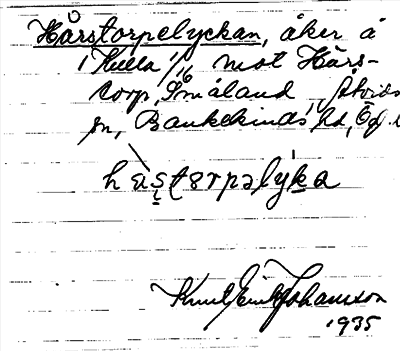 Hårstorpelyckan, åker å
Kulla 1/16 mot Hårs-
torp, Småland, Åtvids
sn, Bankekinds hd, Ög.
Knut Erik Johansson
1935